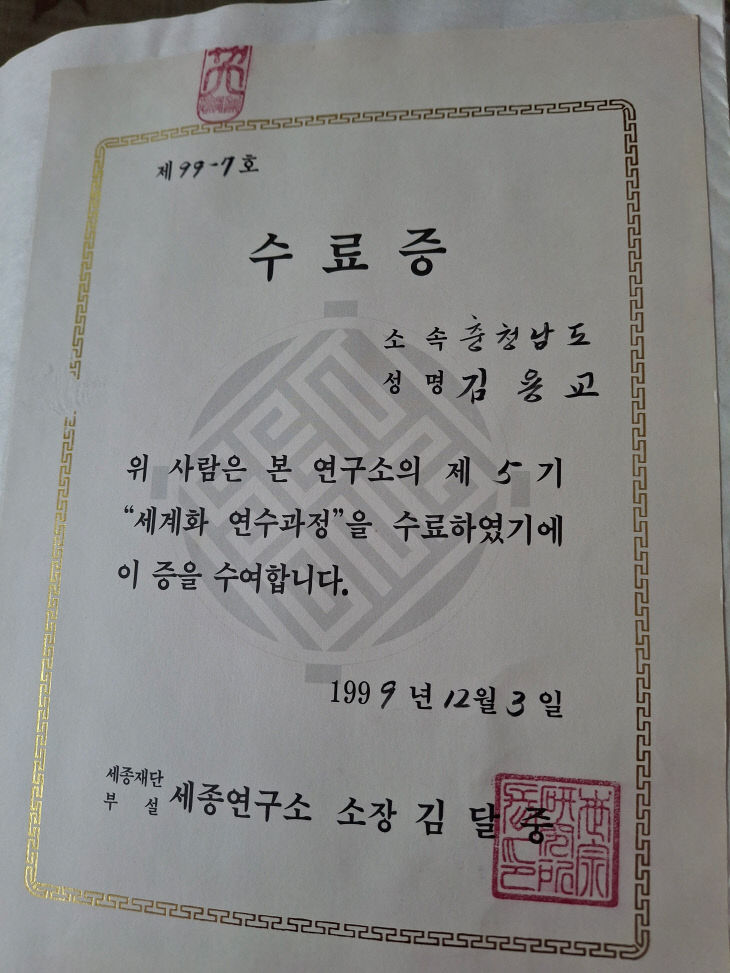 제 99-7 호
수료증
소 속 충청남도
성 명 김용교
위 사람은 본 연구소의 제 5 기
“세계화 연수과정”을 수료하였기에
이 증을 수여합니다.
1999년 12월 3일
세종재단
부 설 세종연구소 소장 김달중